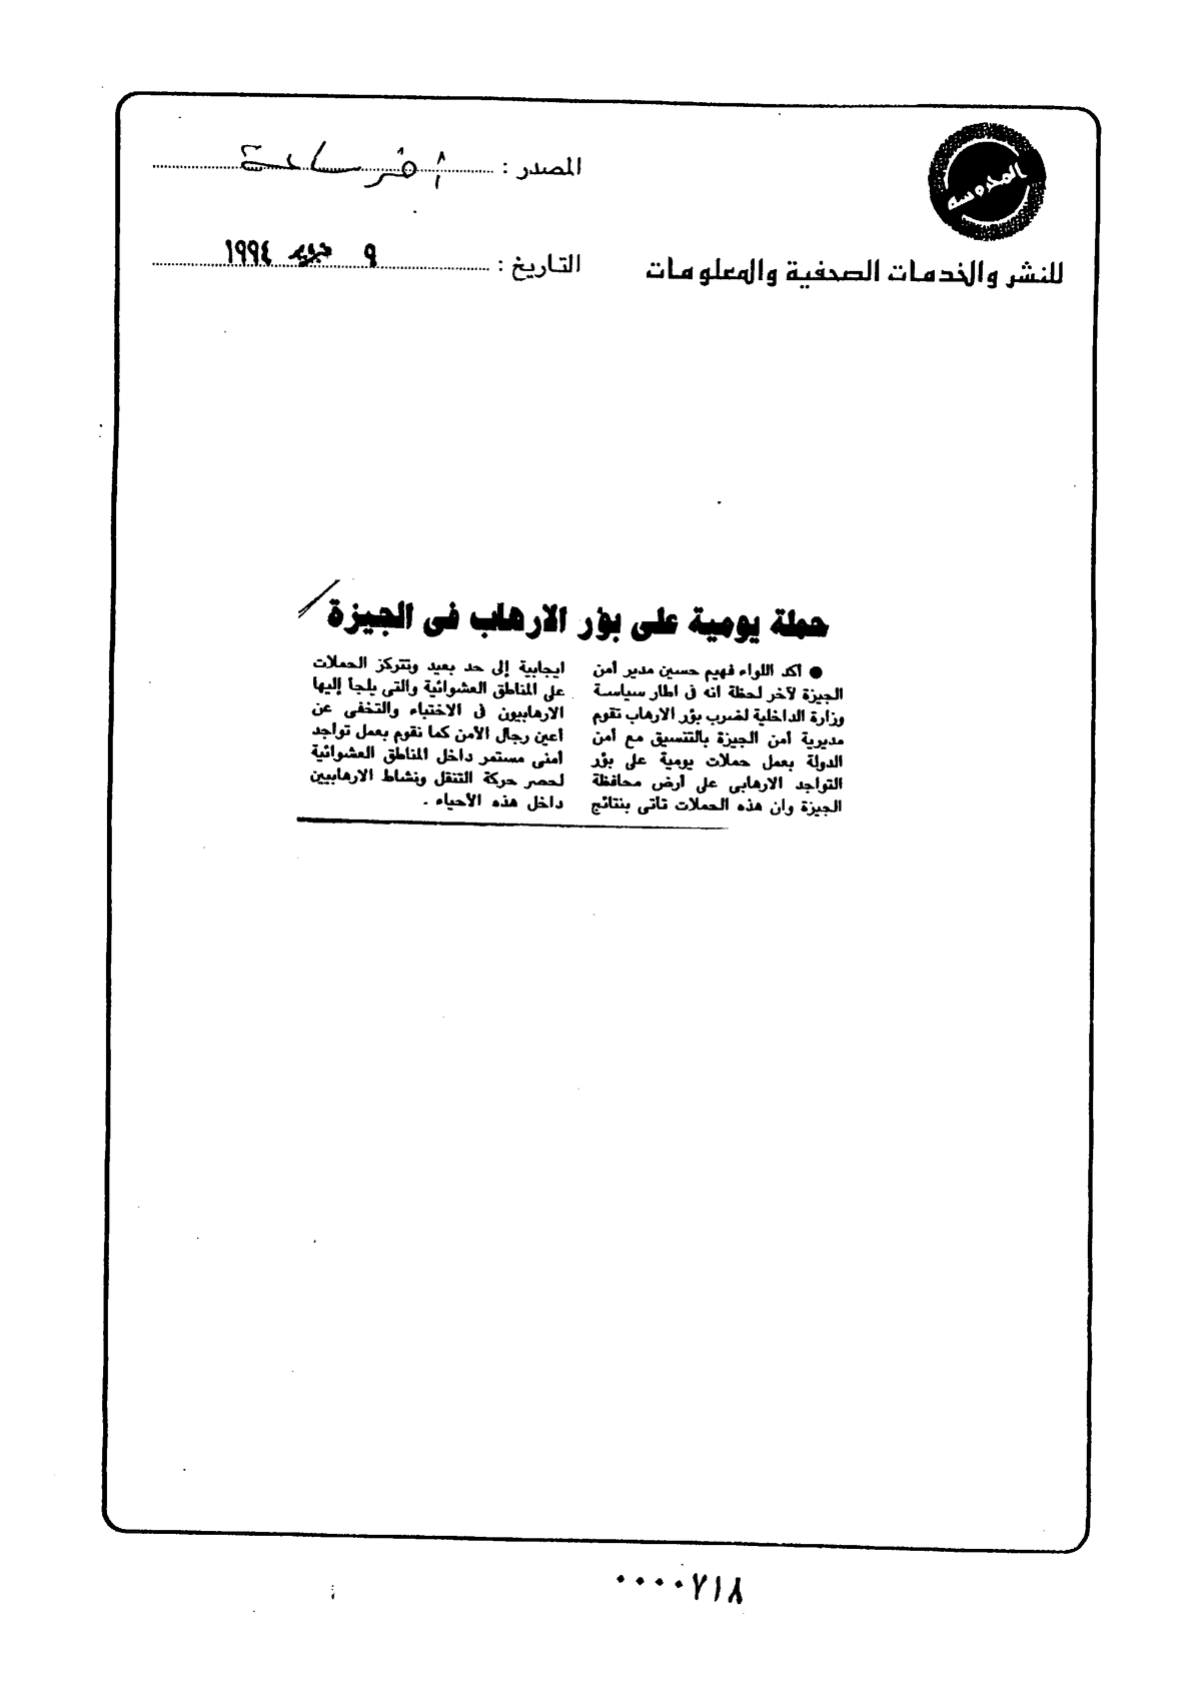 المحروسة
للنشر والخدمات الصحفية والمعلومات
المصدر : آخر ساعة
التاريخ : ٩ فبراير ١٩٩٤
حملة يومية على بؤر الارهاب فى الجيزة
● اكد اللواء فهيم حسين مدير أمن
الجيزة لآخر لحظة انه فى اطار سياسة
وزارة الداخلية لضرب بؤر الارهاب تقوم
مديرية أمن الجيزة بالتنسيق مع أمن
الدولة بعمل حملات يومية على بؤر
التواجد الارهابى على أرض محافظة
الجيزة وان هذه الحملات تاتى بنتائج
ايجابية إلى حد بعيد وتتركز الحملات
على المناطق العشوائية والتى يلجأ إليها
الارهابيون فى الاختباء والتخفى عن
أعين رجال الأمن كما نقوم بعمل تواجد
أمنى مستمر داخل المناطق العشوائية
لحصر حركة التنقل ونشاط الارهابيين
داخل هذه الأحياء .
٠٠٠٠٧١٨